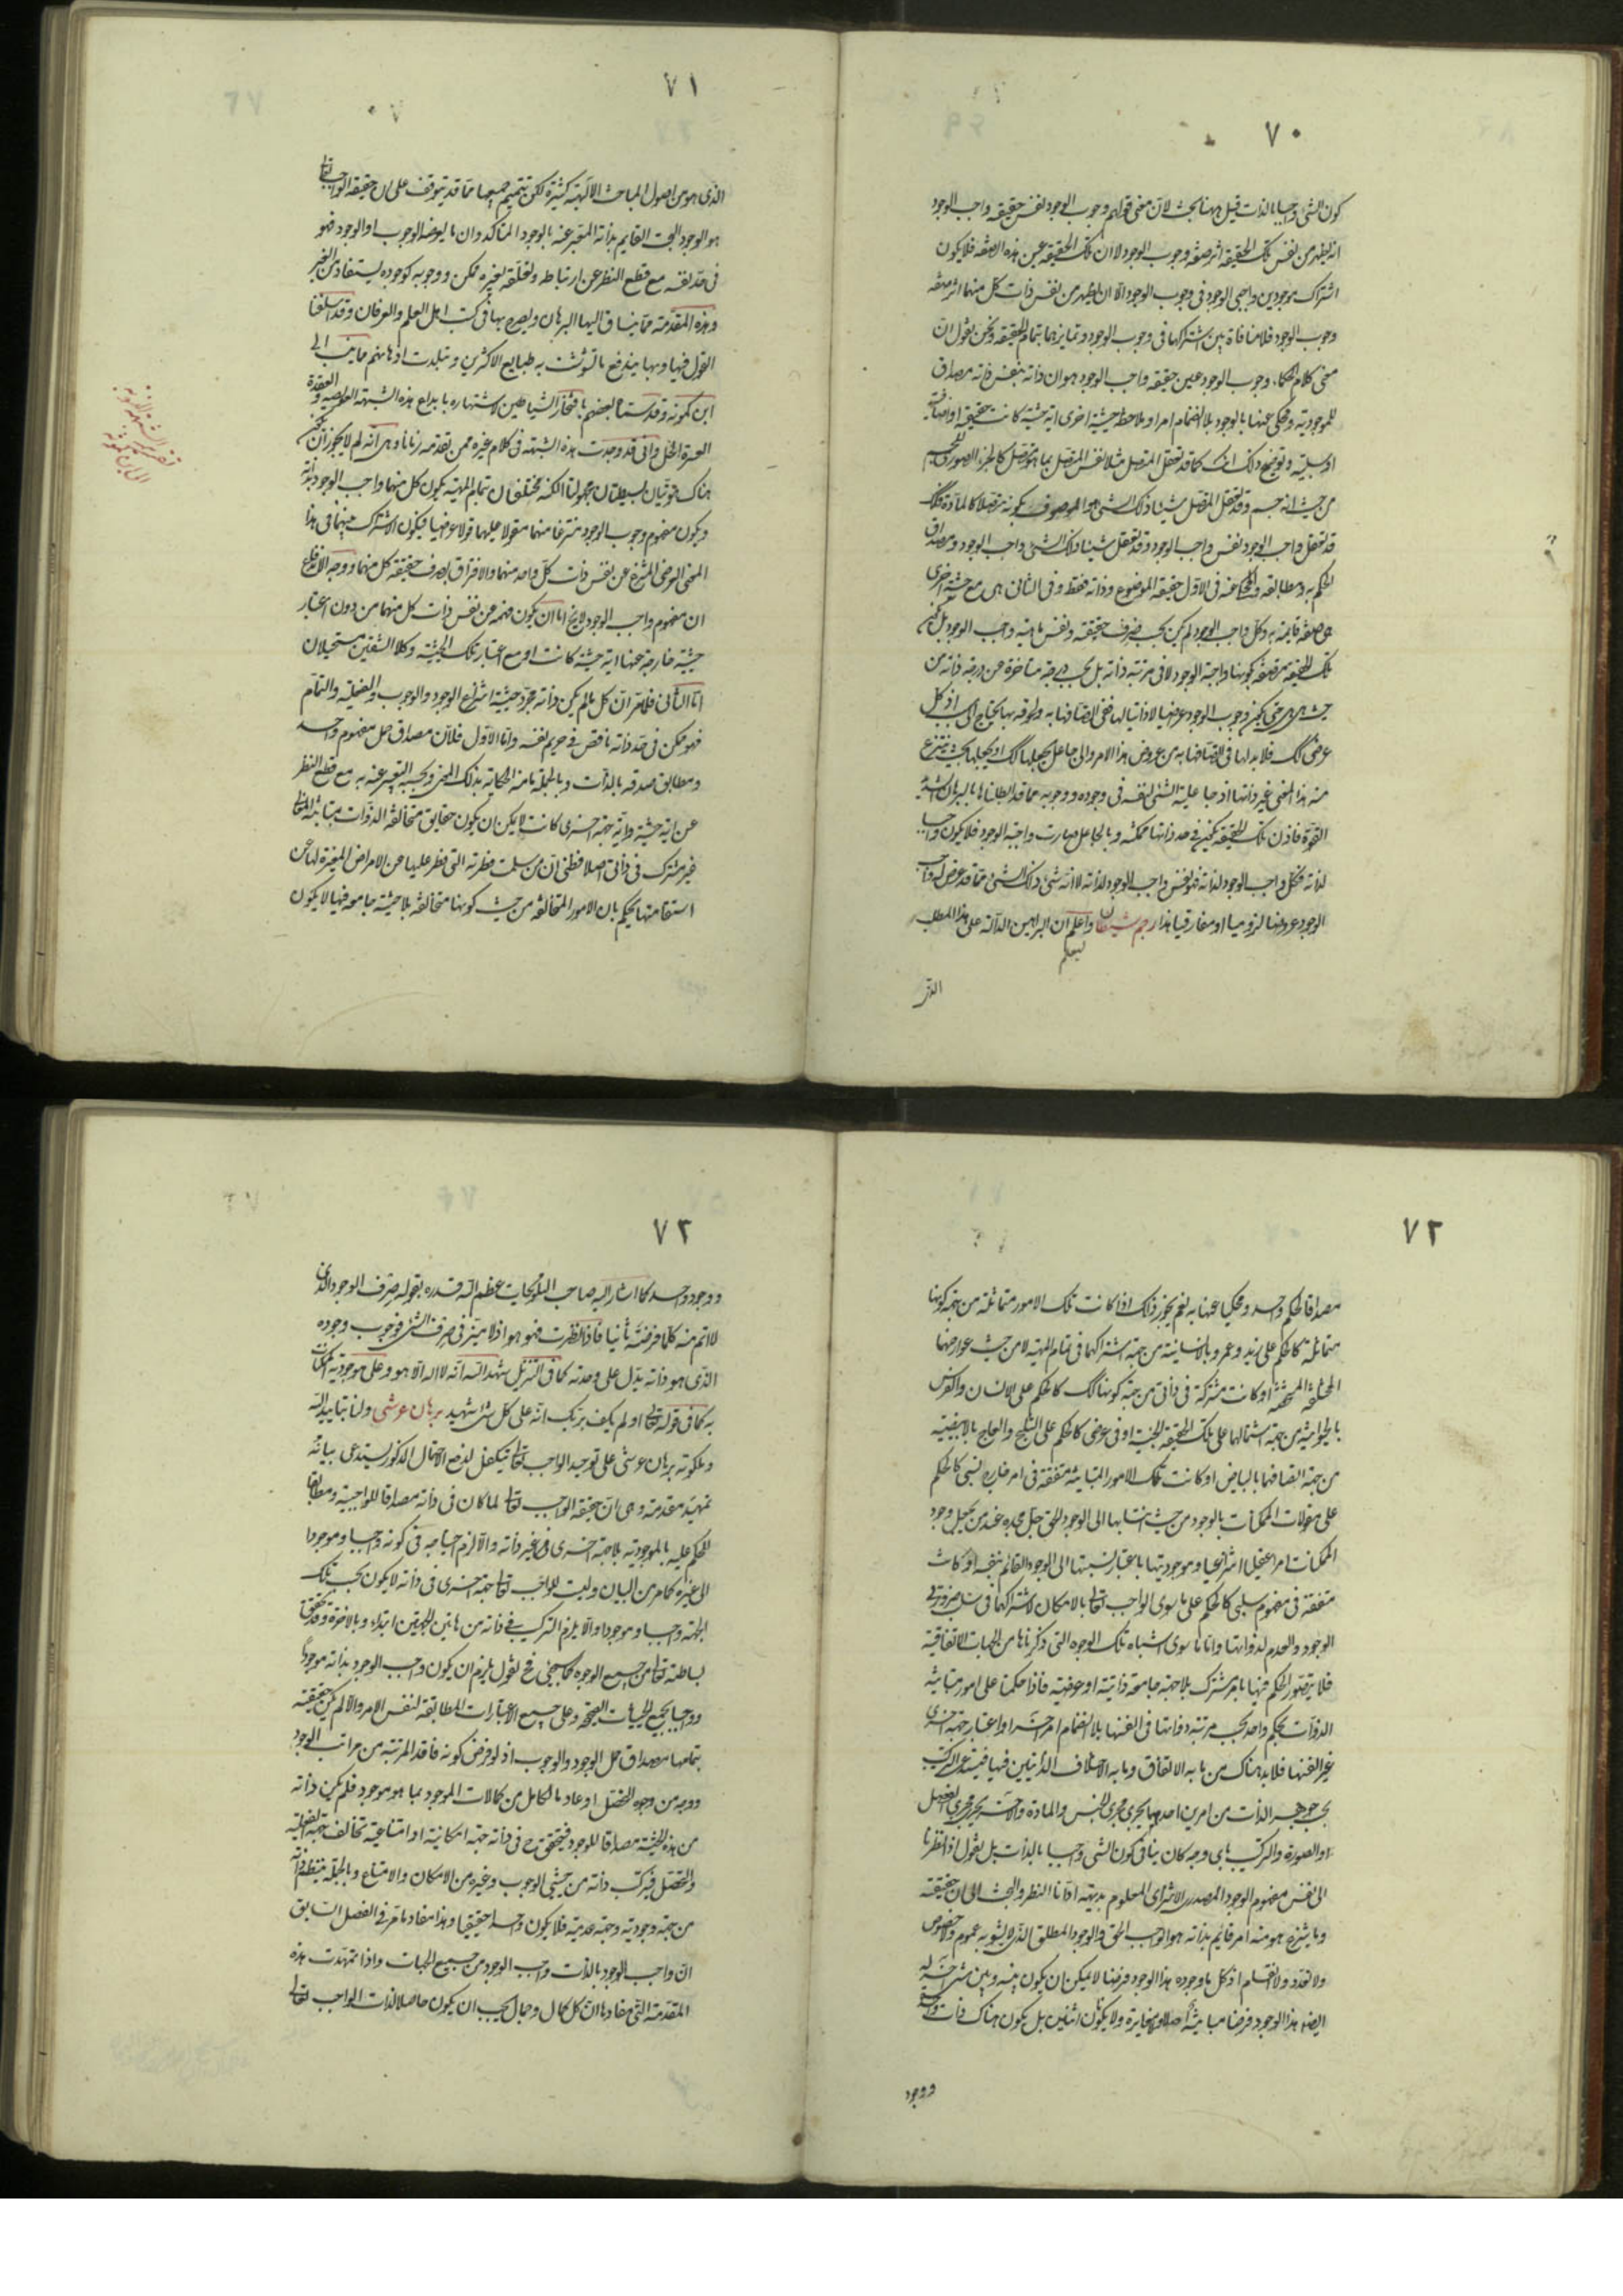 ٧٠
كون الشئ واجبا بالذات قيل ههنا بحث لان معنى قولهم وجوب الوجود نفس حقيقة واجب الوجود
انه يظهر من نفس تلك الحقيقة اثر صفة وجوب الوجود لا ان تلك الحقيقة عين هذه الصفة فلا يكون
اشتراك موجودين واجبى الوجود فى وجوب الوجود الا ان يظهر من نفس ذات كل منهما اثر صفة
وجوب الوجود فلا منافاة بين اشتراكهما فى وجوب الوجود وتمايزهما بتمام الحقيقة ونحن نقول ان
معنى كلام الحكماء وجوب الوجود عين حقيقة واجب الوجود هو ان ذاته بنفس ذاته مصداق
للموجودية ومحكى عنها بالوجود بلا انضمام امر او ملاحظة حيثية اخرى اية حيثية كانت حقيقية او اضافية
او سلبية وتوضيح ذلك انك كما قد تعقل المتصل مثلا نفس المتصل بما هو متصل كالجزء الصورى للجسم
من حيث انه جسم وقد تعقل المتصل شيئا ذلك الشئ هو الموصوف بكونه متصلا كالمادة فكذلك
قد تعقل واجب الوجود نفس واجب الوجود وقد تعقل شيئا ذلك الشئ واجب الوجود ومصداق
الحكم به ومطابقه والمحكى عنه فى الاول حقيقة الموضوع وذاته فقط وفى الثانى هى مع حيثية اخرى
هى صفة قائمة به وكل واجب الوجود لم يكن بحسب صرف حقيقته ونفس ماهيته واجب الوجود بل يكون
تلك الحقيقة متصفة بكونها واجبة الوجود لا فى مرتبة ذاته بل بحسب درجة متاخرة عن درجة ذاته من
حيث هى هى فيكون وجوب الوجود عرضيا لا ذاتيا لها ففى اتصافها به ولحوقه بها يحتاج الى سبب اذ كل
عرضى كذلك فلا بد لها فى اتصافها به من عروض هذا الامر والى جاعل يجعلها كذلك او يجعلها بحيث ينتزع
منه هذا المعنى غير ذاتها اذ جاعلية الشئ لنفسه فى وجوده ووجوبه مما قد ابطلناها بالبرهان الشديد
القوة فاذن تلك الحقيقة يكون فى حد ذاتها ممكنة وبالجاعل صارت واجبة الوجود فلا يكون واجبا
لذاته فكل واجب الوجود لذاته فهو نفس واجب الوجود لذاته لا انه شئ ذلك الشئ مما قد عرض له واجب
الوجود عروضا لزوميا او مفارقيا هذا رجم شيطان واعلم ان البراهين الدالة على هذا المطلب
الذى
٧١
الذى هو من اصول المباحث الالهية كثيرة لكن تتميم جميعها مما قد يتوقف على ان حقيقة الواجب تعالى
هو الوجود البحت القايم بذاته المعبر عنه بالوجود المتاكد وان ما يعرضه الوجوب او الوجود فهو
فى حد نفسه مع قطع النظر عن ارتباطه وتعلقه بغيره ممكن ووجوبه كوجوده يستفاد من الغير
وهذه المقدمة مما ينساق اليها البرهان ويصرح بها فى كتب اهل العلم والعرفان وقد اسلفنا
القول فيها وبها يندفع ما تشوشت به طبايع الاكثرين وتبلدت اذهانهم مما ينسب الى
ابن كمونة وقد سماه بعضهم بافتخار الشياطين لاشتهاره بابداع هذه الشبهة العويصة والعقدة
العسرة الحل وانى قد وجدت هذه الشبهة فى كلام غيره ممن تقدمه زمانا وهى انه لم لا يجوز ان يكون
هناك هويتان بسيطتان مجهولتا الكنه مختلفتان بتمام المهية يكون كل منهما واجب الوجود بذاته
ويكون مفهوم وجوب الوجود منتزعا منهما مقولا عليهما قولا عرضيا فيكون الاشتراك بينهما فى هذا
المعنى العرضى المنتزع عن نفس ذات كل واحد منهما والافتراق بصرف حقيقة كل منهما ووجه الاندفاع
ان مفهوم واجب الوجود لا يخ اما ان يكون فهمه عن نفس ذات كل منهما من دون اعتبار
حيثية خارجة عنها اية حيثية كانت او مع اعتبار تلك الحيثية وكلا الشقين مستحيلان
اما الثانى فلما مر ان كل ما لم يكن ذاته مجرد حيثية انتزاع الوجود والوجوب والفعلية والتمام
فهو ممكن فى حد ذاته ناقص فى حريم نفسه واما الاول فلان مصداق حمل مفهوم واحد
ومطابق صدقه بالذات وبالجملة ما منه الحكاية بذلك المعنى وبحسبه التعبير عنه به مع قطع النظر
عن اية حيثية واية جهة اخرى كانت لا يمكن ان يكون حقايق متخالفة الذوات متباينة المعانى
غير مشترك فى ذاتى اصلا وظنى ان من سلمت فطرته التى فطر عليها عن الامراض المغيرة لها عن
استقامتها يحكم بان الامور المتخالفة من حيث كونها متخالفة بلا حيثية جامعة فيها لا يكون
٧٢
مصداقا لحكم واحد ومحكيا عنها به نعم يجوز ذلك اذا كانت تلك الامور متماثلة من جهة كونها
متماثلة كالحكم على زيد وعمرو بالانسانية من جهة اشتراكهما فى تمام المهية لا من حيث عوارضهما
المختلفة المشخصة او كانت مشتركة فى ذاتى من جهة كونها كذلك كالحكم على الانسان والفرس
بالحيوانية من جهة اشتمالها على تلك الحقيقة الجنسية او فى عرضى كالحكم على الثلج والعاج بالابيضية
من جهة اتصافهما بالبياض او كانت تلك الامور المتباينة متفقة فى امر خارج نسبى كالحكم
على مقولات الممكنات بالوجود من حيث انتسابها الى الوجود الحق جل مجده عند من يجعل وجود
الممكنات امرا عقليا انتزاعيا وموجوديتها باعتبار نسبتها الى الوجود القائم بنفسه او كانت
متفقة فى مفهوم سلبى كالحكم على ما سوى الواجب تعالى بالامكان لاشتراكهما فى سلب ضرورتى
الوجود والعدم لذواتها واما ما سوى اشباه تلك الوجوه التى ذكرناها من الجهات الاتفاقية
فلا يتصور الحكم فيها بامر مشترك بلا جهة جامعة ذاتية او عرضية فاذا حكمنا على امور متباينة
الذوات بحكم واحد بحسب مرتبة ذواتها فى انفسها بلا انضمام امر اخر او اعتبار جهة اخرى
غير انفسها فلا بد هناك من ما به الاتفاق وما به الاختلاف الذاتيين فيها فيستدعى التركيب
بحسب جوهر الذات من امرين احدهما يجرى مجرى الجنس والمادة والاخر يجرى مجرى الفصل
او الصورة والتركيب باى وجه كان ينافى كون الشئ واجبا بالذات بل نقول اذا نظرنا
الى نفس مفهوم الوجود المصدرى الانتزاعى المعلوم بديهة ادانا النظر والبحث الى ان حقيقته
وما ينتزع هو منه امر قايم بذاته هو الواجب الحق والوجود المطلق الذى لا يشوبه عموم ولا خصوص
ولا تعدد ولا انقسام اذ كل ما وجوده هذا الوجود فرضا لا يمكن ان يكون بينه وبين شئ اخر له
ايضا هذا الوجود فرضا مباينة اصلا ولا مغايرة ولا يكونان اثنين بل يكون هناك ذات واحدة
ووجود
٧٣
ووجود واحد كما اشار اليه صاحب التلويحات عظم الله قدره بقوله صرف الوجود الذى
لا اتم منه كلما فرضته ثانيا فاذا نظرت فهو هو اذ لا ميز فى صرف الشئ فوجوب وجوده
الذى هو ذاته يدل على وحدته كما فى التنزيل شهد الله انه لا اله الا هو وعلى موجودية الممكنات
به كما فى قوله تعالى اولم يكف بربك انه على كل شئ شهيد برهان عرشى ولنا بتاييد الله
وملكوته برهان عرشى على توحيد الواجب تعالى يتكفل لدفع الاحتمال المذكور يستدعى بيانه
تمهيد مقدمة وهى ان حقيقة الواجب تعالى لما كان فى ذاته مصداقا للواجبية ومطابقا
للحكم عليه بالموجودية بلا جهة اخرى غير ذاته والا لزم احتياجه فى كونه واجبا وموجودا
الى غيره كما مر من البيان وليست للواجب تعالى جهة اخرى فى ذاته لا يكون بحسب تلك
الجهة واجبا وموجودا والا يلزم التركيب فى ذاته من هاتين الجهتين ابتداء وبالاخرة وقد تحقق
بساطته تعالى من جميع الوجوه كما سيجئ فح نقول يلزم ان يكون واجب الوجود بذاته موجودا
وواجبا بجميع الحيثيات الصحيحة وعلى جميع الاعتبارات المطابقة لنفس الامر والا لم يكن حقيقته
بتمامها مصداق حمل الوجود والوجوب اذ لو فرض كونه فاقدا لمرتبة من مراتب الوجود
ووجه من وجوه التحصل او عادما لكمال من كمالات الموجود بما هو موجود فلم يكن ذاته
من هذه الحيثية مصداقا للوجود فيتحقق ح فى ذاته جهة امكانية او امتناعية تخالف جهة الفعلية
والتحصل فيتركب ذاته من حيثيتى الوجوب وغيره من الامكان والامتناع وبالجملة ينتظم ذاته
من جهة وجودية وجهة عدمية فلا يكون واحدا حقيقيا وهذا مفاد ما مر فى الفصل السابق
ان واجب الوجود بالذات واجب الوجود من جميع الجهات واذا تمهدت هذه
المقدمة التى مفادها ان كل كمال وجمال يجب ان يكون حاصلا لذات الواجب تعالى